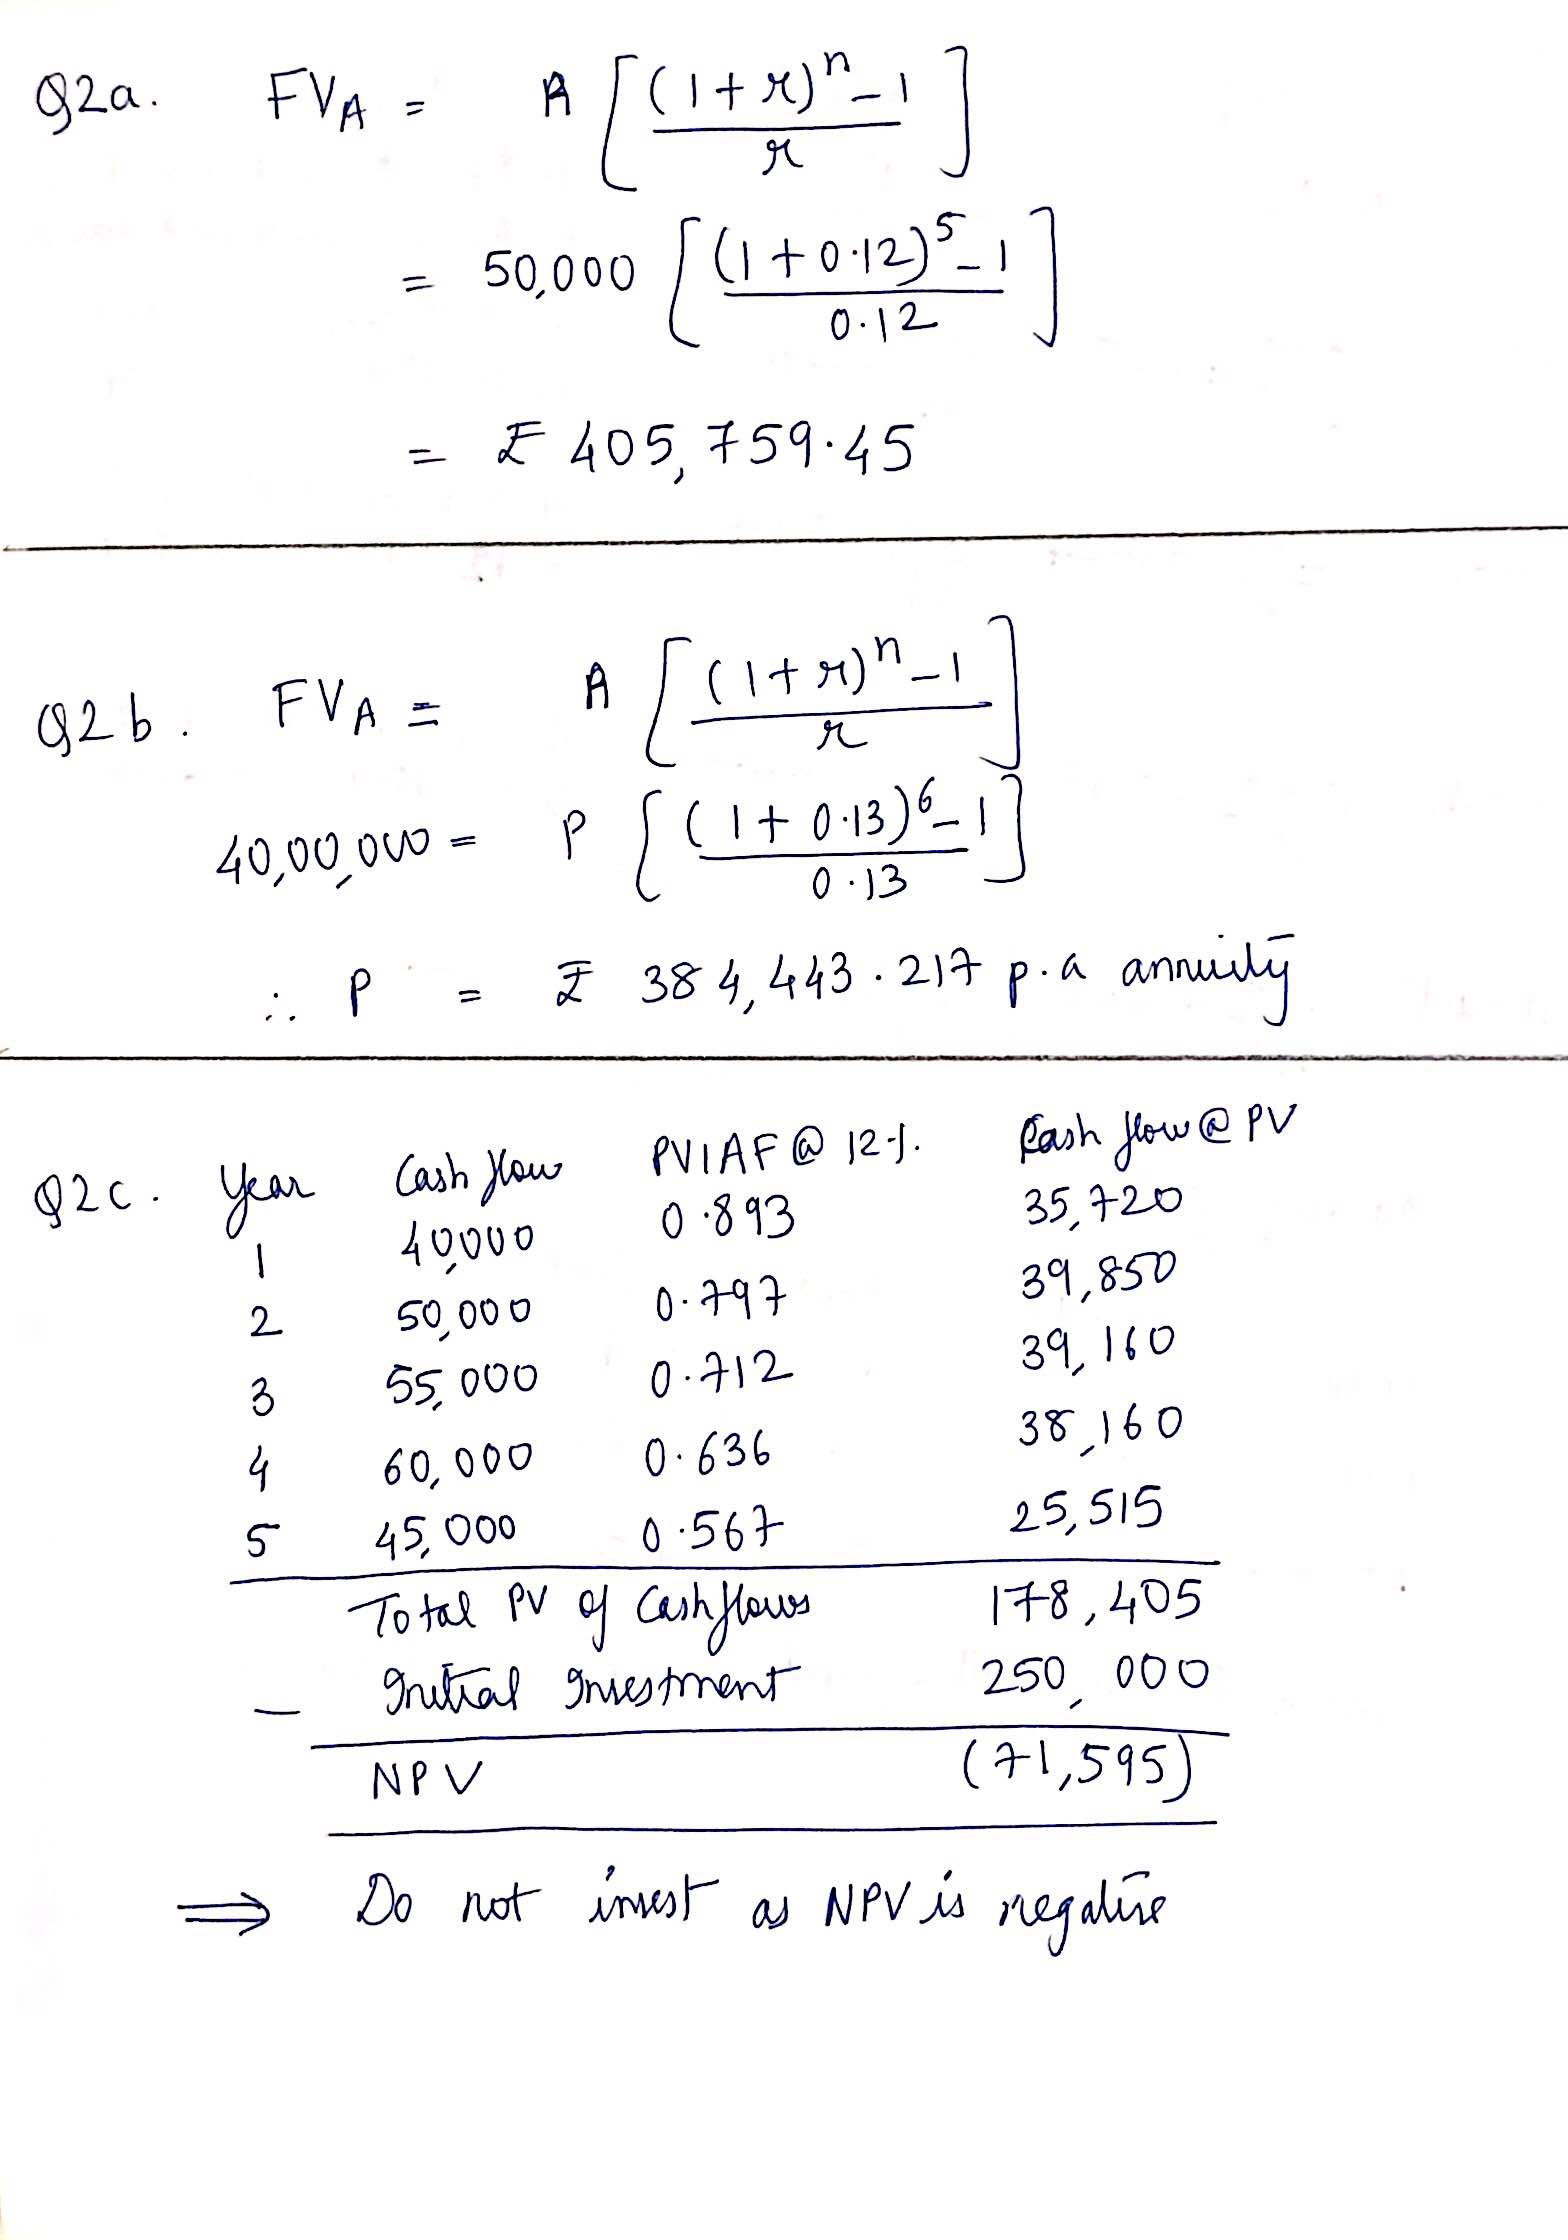 Q2a. FVA = A [ (1+r)^n - 1 / r ]
= 50,000 [ (1+0.12)^5 - 1 / 0.12 ]
= ₹ 405,759.45
Q2b. FVA = A [ (1+r)^n - 1 / r ]
40,00,000 = P [ (1+0.13)^6 - 1 / 0.13 ]
∴ P = ₹ 384,443.217 p.a annuity
Q2c. Year Cash flow PVIAF @ 12%. Cash flow @ PV
1 40,000 0.893 35,720
2 50,000 0.797 39,850
3 55,000 0.712 39,160
4 60,000 0.636 38,160
5 45,000 0.567 25,515
Total PV of Cashflows 178,405
— Initial Investment 250,000
NPV (71,595)
⇒ Do not invest as NPV is negative